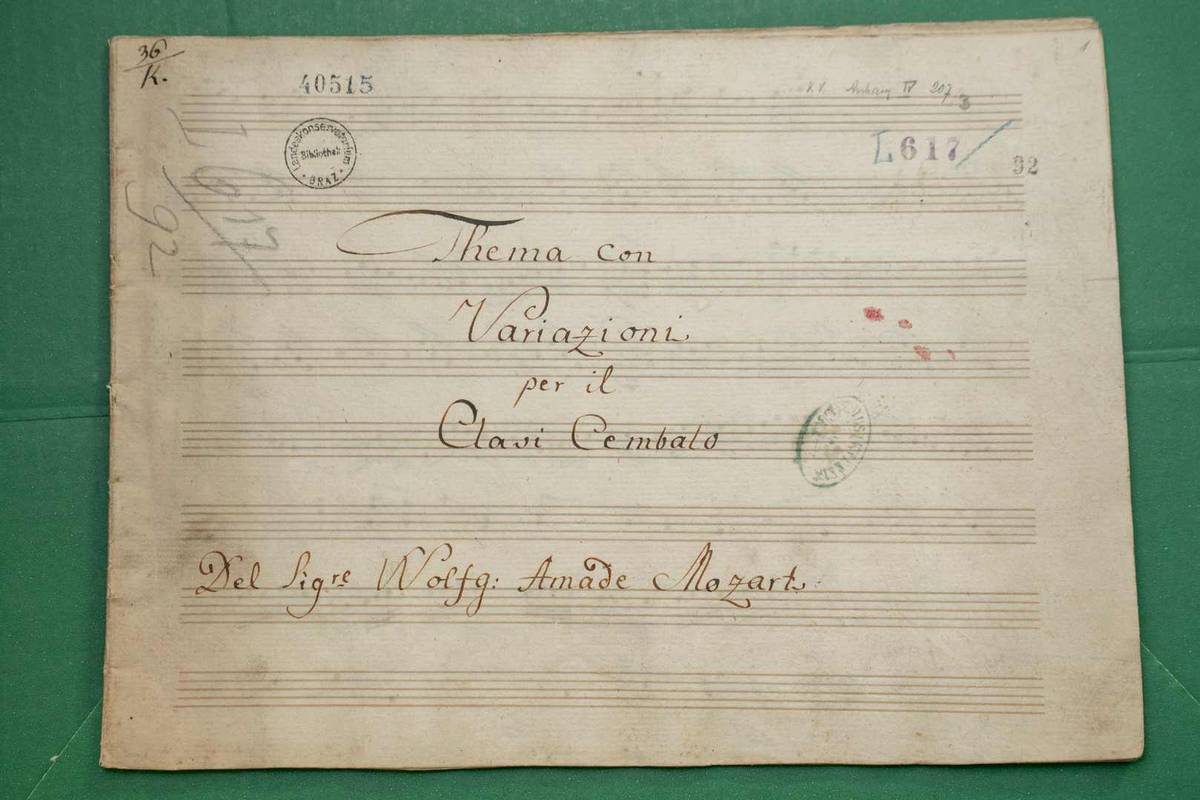 36
K.
40515
K.V. Anhang IV 207
1
3
L 617
92
Landeskonservatorium
Bibliothek
GRAZ
L 617
92
Thema con
Variazioni
per il
Clavi Cembalo
Del Sigre Wolfg: Amade Mozart